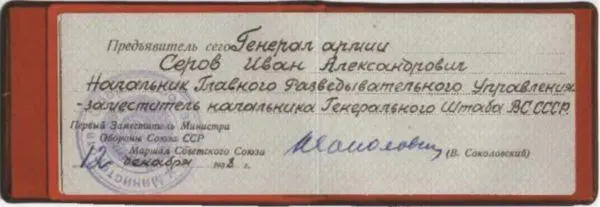 Предъявитель сего Генерал армии
Серов Иван Александрович
Начальник Главного Разведывательного Управления
-заместитель начальника Генерального Штаба ВС СССР.
Первый Заместитель Министра
Обороны Союза ССР
Маршал Советского Союза
(В. Соколовский)
12 декабря 1958 г.